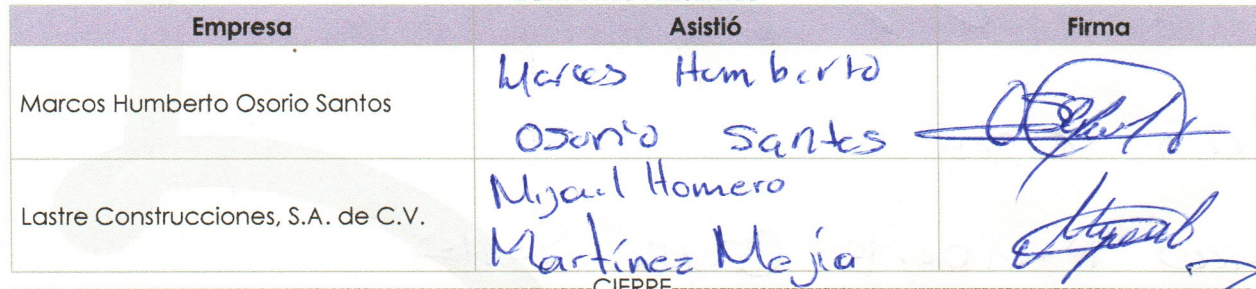 Empresa Asistió Firma
Marcos Humberto Osorio Santos
Marcos Humberto
Osorio Santos
Lastre Construcciones, S.A. de C.V.
Mijail Homero
Martínez Mejía
CIERRE